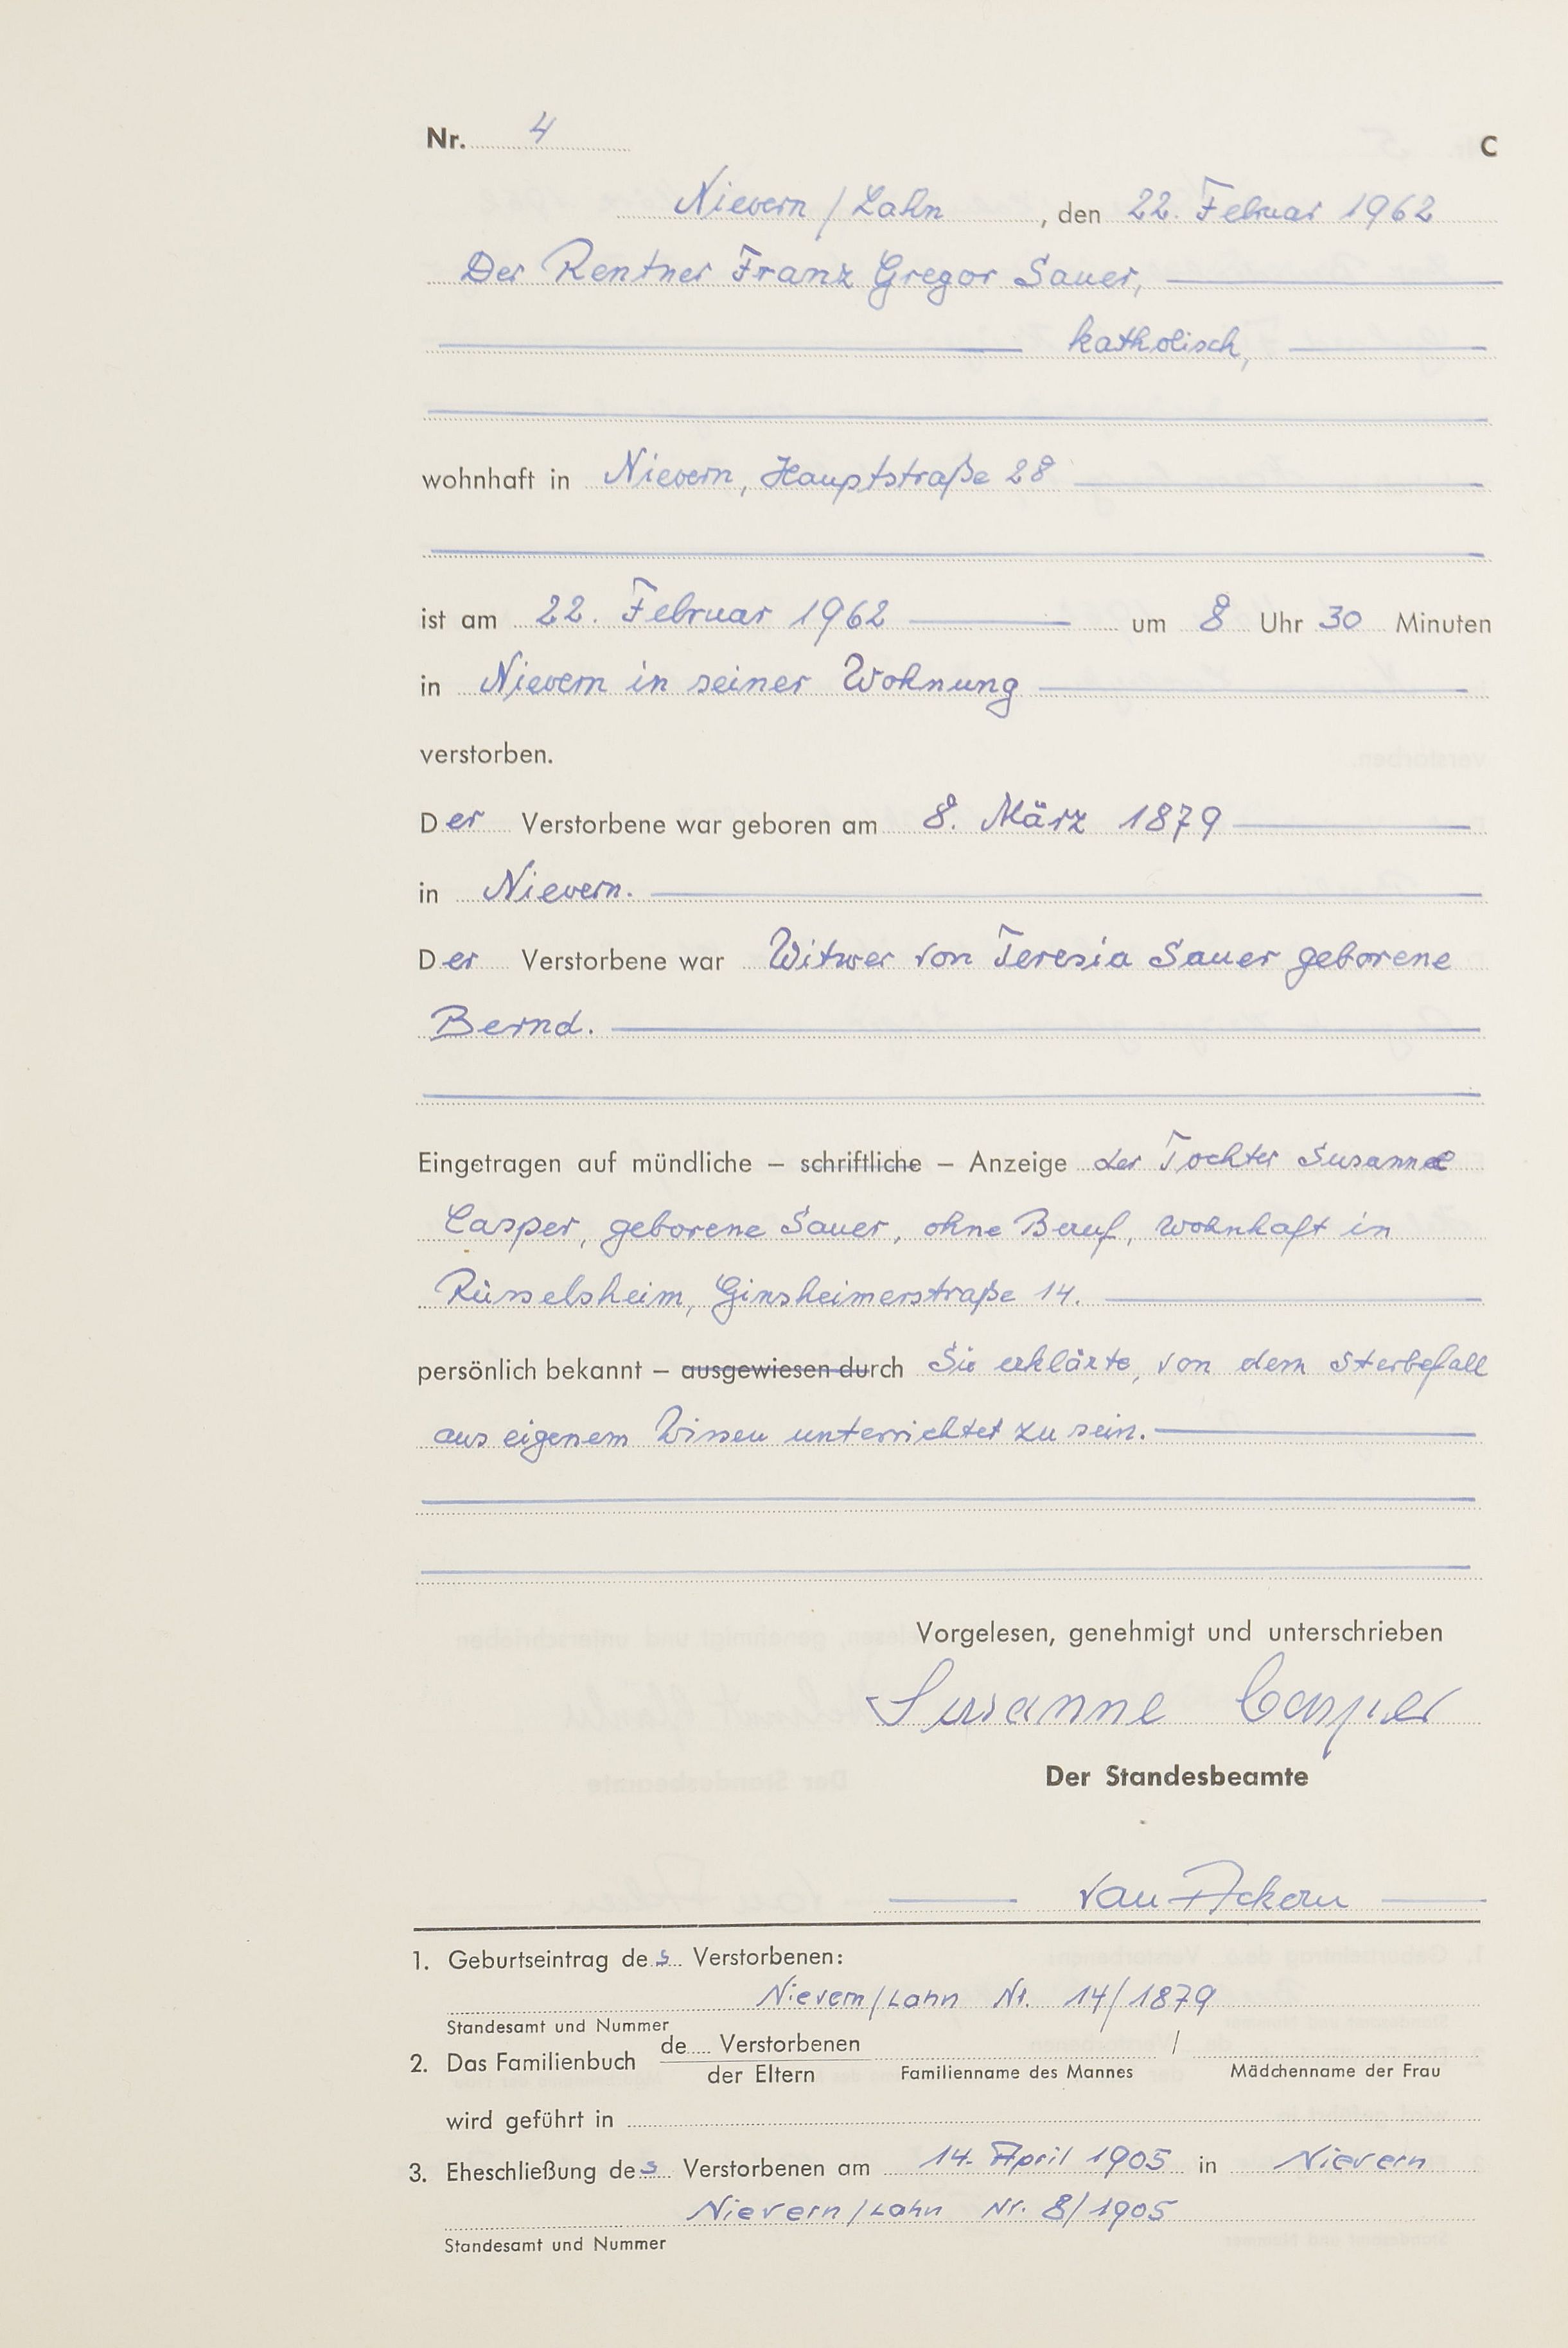 Nr. 4 C
Nievern / Lahn, den 22. Februar 1962
Der Rentner Franz Gregor Sauer,
katholisch,
wohnhaft in Nievern, Hauptstraße 28
ist am 22. Februar 1962 um 8 Uhr 30 Minuten
in Nievern in seiner Wohnung
verstorben.
Der Verstorbene war geboren am 8. März 1879
in Nievern.
Der Verstorbene war Witwer von Teresia Sauer geborene
Bernd.
Eingetragen auf mündliche – schriftliche – Anzeige der Tochter Susanne
Casper, geborene Sauer, ohne Beruf, wohnhaft in
Rüsselsheim, Ginsheimerstraße 14.
persönlich bekannt – ausgewiesen durch Sie erklärte, von dem Sterbefall
aus eigenem Wissen unterrichtet zu sein.
Vorgelesen, genehmigt und unterschrieben
Susanne Casper
Der Standesbeamte
van Ackern
1. Geburtseintrag des Verstorbenen:
Nievern/Lahn Nr. 14/1879
Standesamt und Nummer
2. Das Familienbuch de.... Verstorbenen /
der Eltern Familienname des Mannes Mädchenname der Frau
wird geführt in
3. Eheschließung des Verstorbenen am 14. April 1905 in Nievern
Nievern/Lahn Nr. 8/1905
Standesamt und Nummer